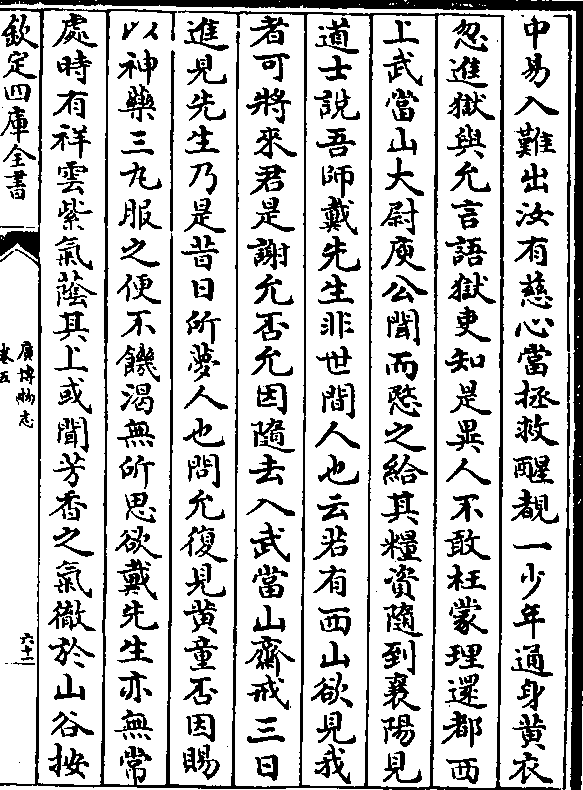 中易入難出汝有慈心當拯救醒覩一少年通身黄衣
忽進獄與允言語獄吏知是異人不敢枉蒙理還都西
上武當山大尉庾公聞而愍之給其糧資隨到襄陽見
道士說吾師戴先生非世間人也云若有西山欲見我
者可將來君是謝允否允因隨去入武當山齋戒三日
進見先生乃是昔日所夢人也問允復見黄童否因賜
以神藥三丸服之便不饑渴無所思欲戴先生亦無常
處時有祥雲紫氣蔭其上或聞芳香之氣徹於山谷按
欽定四庫全書
廣博物志
卷五
六十一